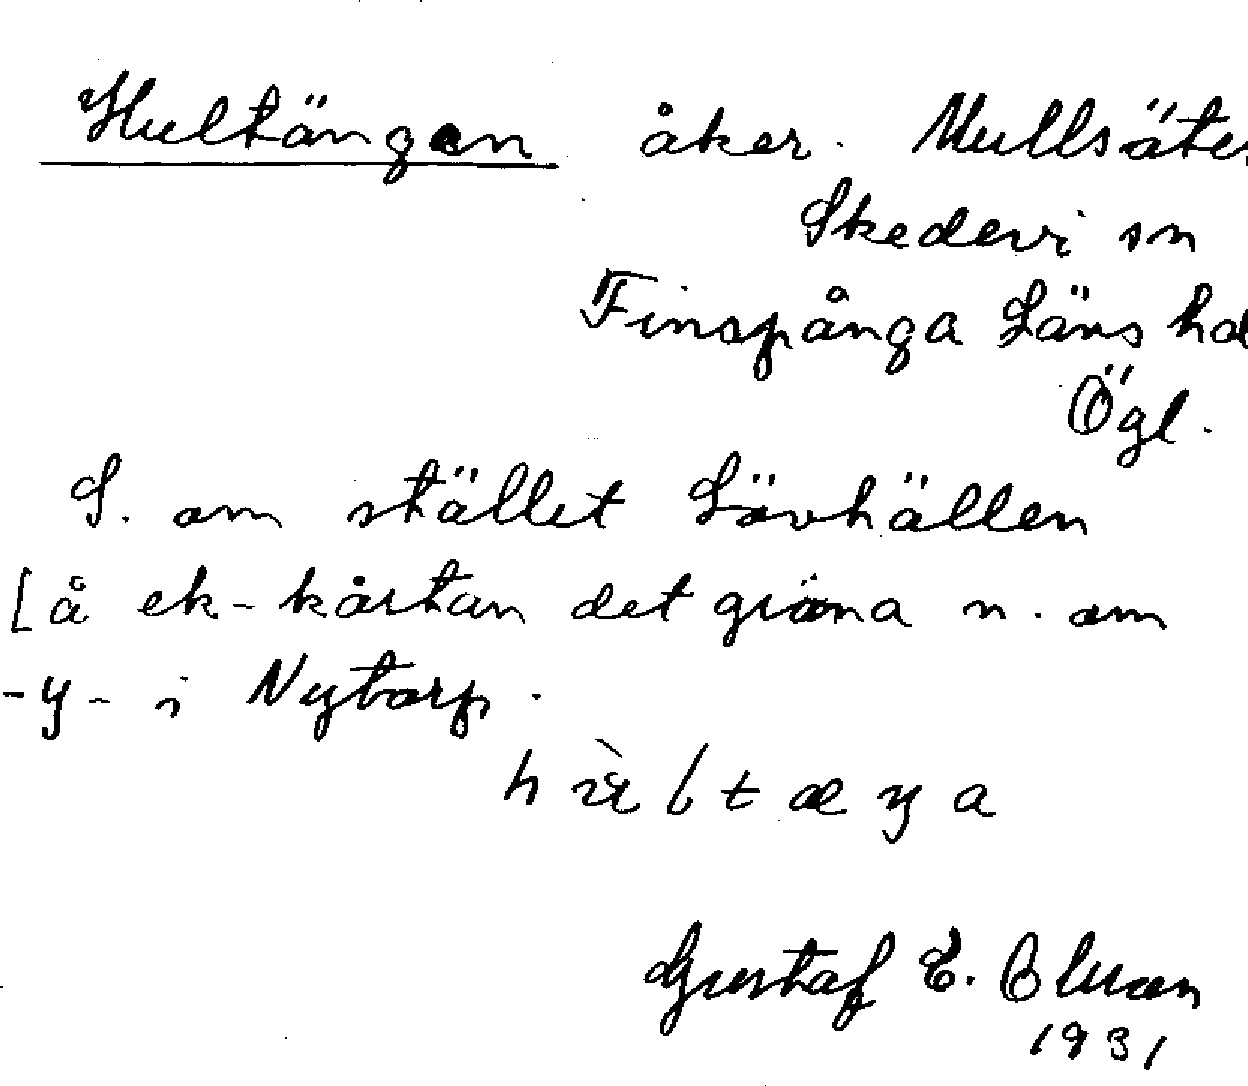 Hultängen åker. Mullsäter
Skedevi sn
Finspånga Läns hd
Ögl.
S. om stället Lövhällen
[å ek-kartan det gröna n. om
-y- i Nytorp.
Gustaf E.
1931